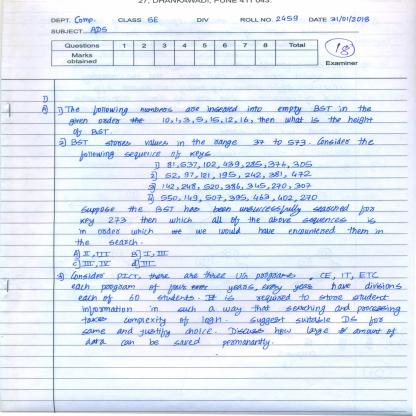 27, DHANKAWADI, PUNE 411 043.
DEPT. Comp. CLASS SE DIV ROLL NO. 2459 DATE 31/01/2018
SUBJECT ADS
Questions 1 2 3 4 5 6 7 8 Total
Marks obtained
18
Examiner
1)
A) 1) The following numbers are inserted into empty BST in the
given order 10,1,3,5,15,12,16, then what is the height
of BST.
2) BST stores values in the range 37 to 573. Consider the
following sequence of keys
I) 81,537,102,439,285,376,305
II) 52, 97, 121, 195, 242, 381, 472
III) 142,248,520,386,345,270,307
IV) 550,149,507,395,463,402,270
Suppose the BST has been unsuccessfully searched for
key 273 then which all of the above sequences is
in order which we would have encountered them in
the search.
A) II, III B) I, III
C) III, IV d) III
3) Consider PICT, there are three UG programs, CE, IT, ETC
each program of four years, every years have divisions
each of 60 students. It is required to store student
information in such a way that searching and processing
takes complexity of logn. suggest suitable DS for
same and justify choice. Discuss how large amount of
data can be saved permanantly.